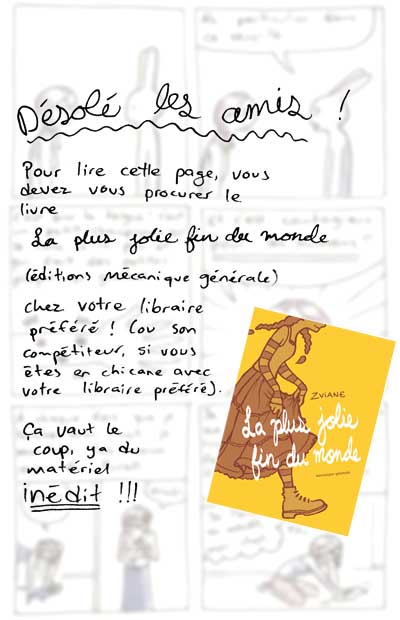 Désolé les amis !
Pour lire cette page, vous
devez vous procurer le
livre
La plus jolie fin du monde
(éditions mécanique générale)
chez votre libraire
préféré ! (ou son
compétiteur, si vous
êtes en chicane avec
votre libraire préféré).
Ça vaut le
coup, ya du
matériel
inédit !!!
ZVIANE
La plus jolie
fin du monde